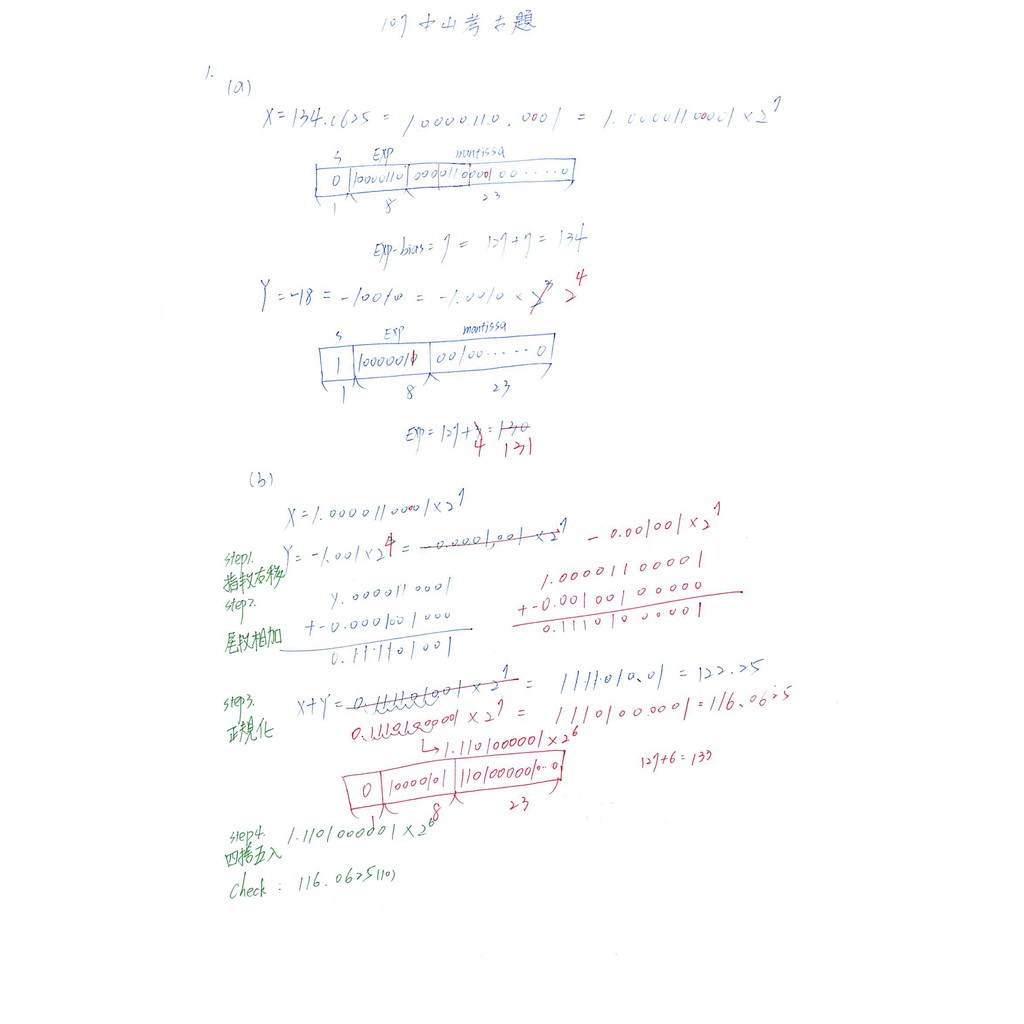 107 中山考古題
1.
(a)
X = 134.0625 = 10000110.0001 = 1.00001100001 × 2^7
S EXP mantissa
0 10000110 00001100001 00 ..... 0
1 8 23
Exp-bias = 7 = 127 + 7 = 134
Y = -18 = -10010 = -1.0010 × 2^3 2^4
S EXP mantissa
1 10000010 00100.....0
1 8 23
Exp = 127 + 3 = 130
4 131
(b)
X = 1.00001100001 × 2^7
step1. Y = -1.001 × 2^4 = -0.0001001 × 2^7 -0.001001 × 2^7
指數右移
step2.
尾段相加
1.0000110001 1.00001100001
+ -0.0001001000 + -0.00100100000
0.111101001 0.11101000001
step3. X+Y = 0.111101001 × 2^7 = 1111010.01 = 122.25
正規化 0.11101000001 × 2^7 = 1110100.0001 = 116.0625
↳ 1.1101000001 × 2^6
0 10000101 1101000001 0..0 127+6=133
1 8 23
step4. 1.1101000001 × 2^6
四捨五入
Check : 116.0625(10)